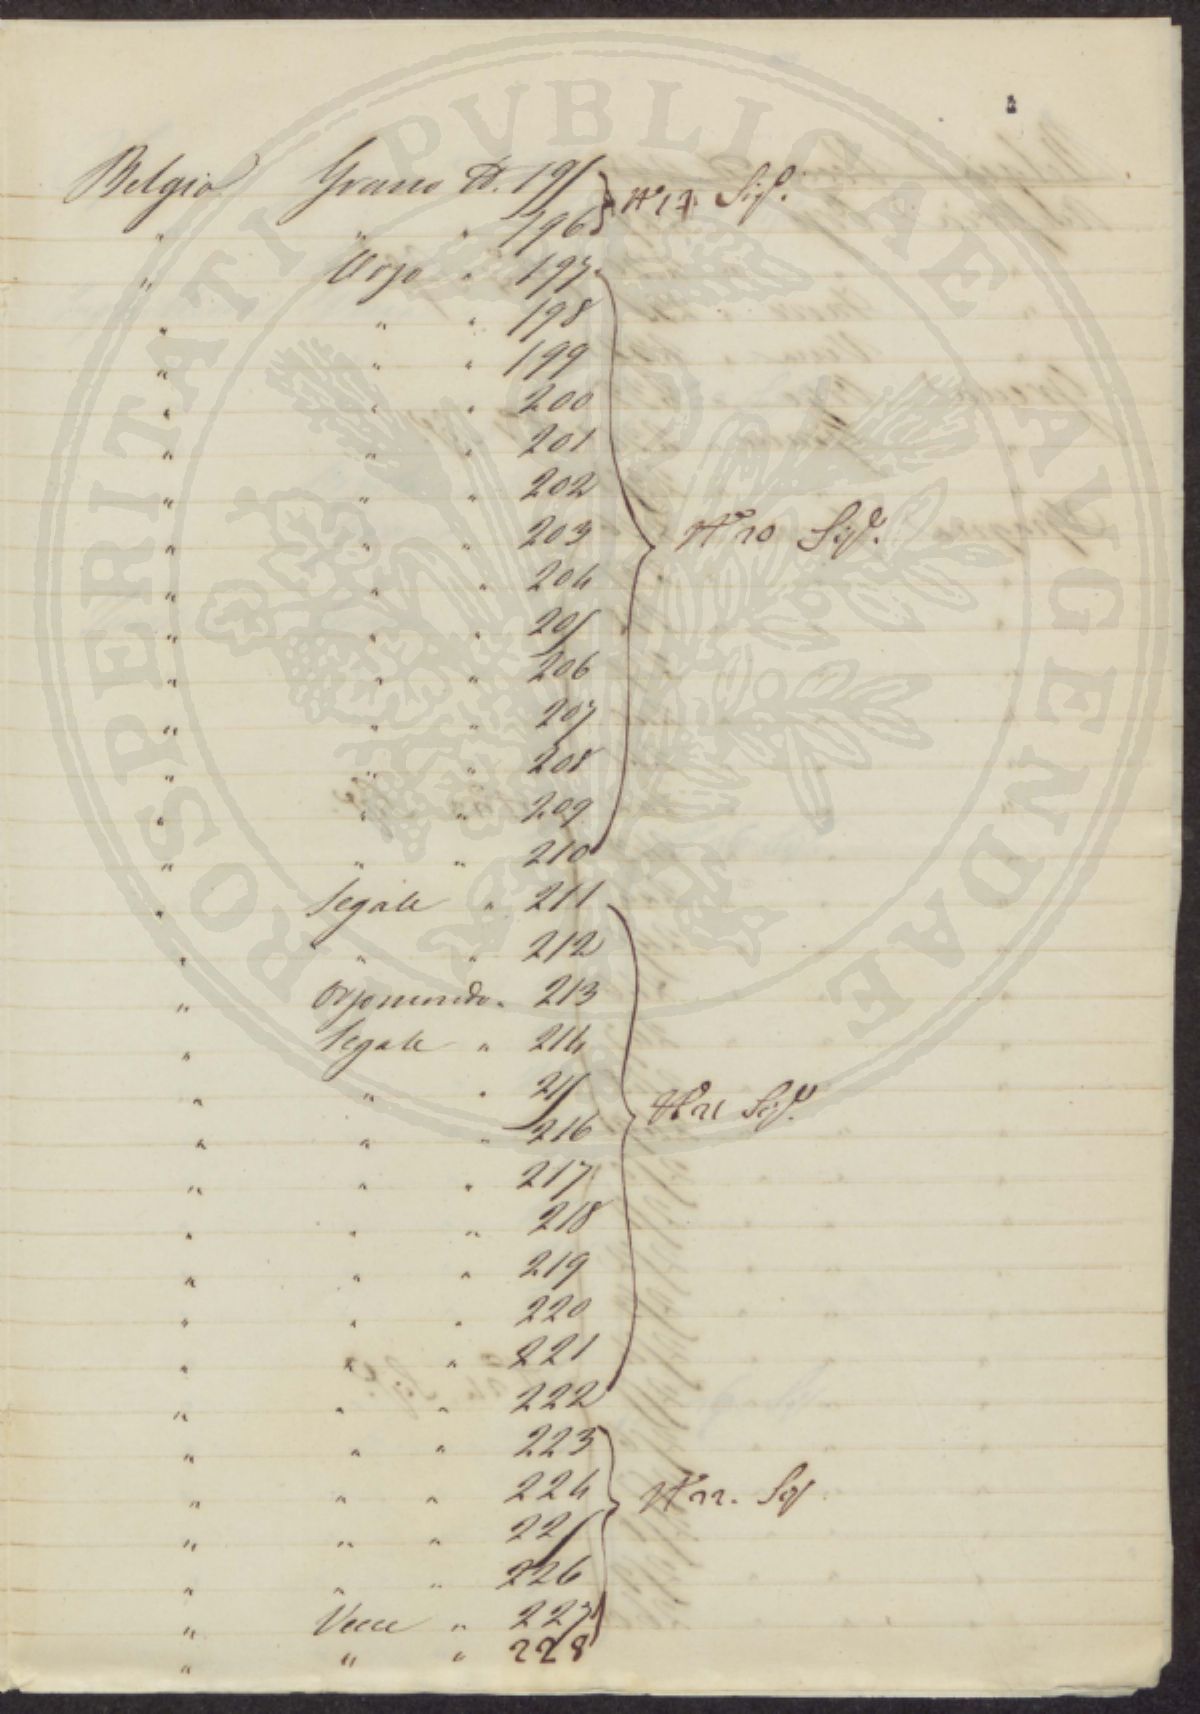 PROSPERITATI PVBLICAE AVGENDAE
Belgio Grano N. 195
" " " 196
N 19 Sig.
" Orzo " 197
" " " 198
" " " 199
" " " 200
" " " 201
" " " 202
" " " 203
N 20 Sig.
" " " 204
" " " 205
" " " 206
" " " 207
" " " 208
" " " 209
" " " 210
" Segale " 211
" " " 212
" Orzomondo " 213
" Segale " 214
" " " 215
N 21 Sig.
" " " 216
" " " 217
" " " 218
" " " 219
" " " 220
" " " 221
" " " 222
" " " 223
" " " 224
N 22. Sig
" " " 225
" " " 226
" Vecce " 227
" " " 228